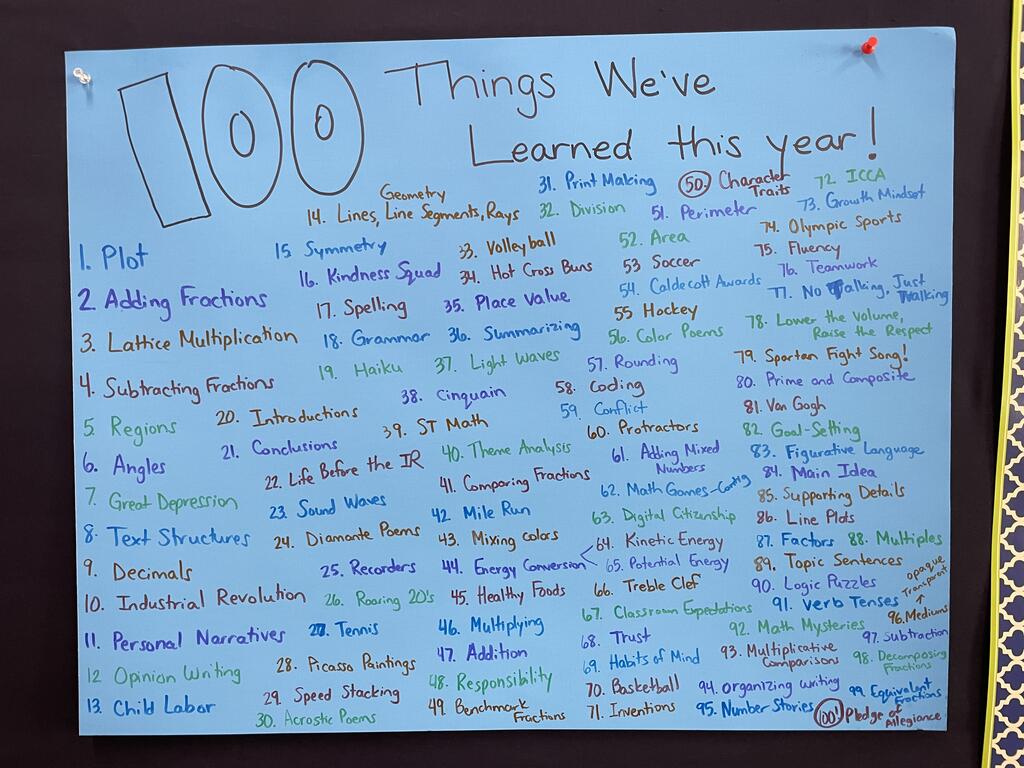 100 Things We've
Learned this year!
1. Plot
2 Adding Fractions
3. Lattice Multiplication
4. Subtracting Fractions
5. Regions
6. Angles
7. Great Depression
8. Text Structures
9. Decimals
10. Industrial Revolution
11. Personal Narratives
12 Opinion Writing
13. Child Labor
Geometry
14. Lines, Line Segments, Rays
15 Symmetry
16. Kindness Squad
17. Spelling
18. Grammar
19. Haiku
20. Introductions
21. Conclusions
22. Life Before the IR
23. Sound Waves
24. Diamante Poems
25. Recorders
26. Roaring 20's
27. Tennis
28. Picasso Paintings
29. Speed Stacking
30. Acrostic Poems
31. Print Making
32. Division
33. Volleyball
34. Hot Cross Buns
35. Place Value
36. Summarizing
37. Light Waves
38. Cinquain
39. ST Math
40. Theme Analysis
41. Comparing Fractions
42. Mile Run
43. Mixing colors
44. Energy Conversion
45. Healthy Foods
46. Multiplying
47. Addition
48. Responsibility
49. Benchmark
Fractions
50. Character
Traits
51. Perimeter
52. Area
53 Soccer
54. Caldecott Awards
55 Hockey
56. Color Poems
57. Rounding
58. Coding
59. Conflict
60. Protractors
61. Adding Mixed
Numbers
62. Math Games-Contig
63. Digital Citizenship
64. Kinetic Energy
65. Potential Energy
66. Treble Clef
67. Classroom Expectations
68. Trust
69. Habits of Mind
70. Basketball
71. Inventions
72. ICCA
73. Growth Mindset
74. Olympic Sports
75. Fluency
76. Teamwork
77. No Talking, Just
Walking
78. Lower the Volume,
Raise the Respect
79. Spartan Fight Song!
80. Prime and Composite
81. Van Gogh
82. Goal-Setting
83. Figurative Language
84. Main Idea
85. Supporting Details
86. Line Plots
87. Factors
88. Multiples
89. Topic Sentences
90. Logic Puzzles
91. Verb Tenses
92. Math Mysteries
93. Multiplicative
Comparisons
94. Organizing writing
95. Number Stories
opaque
Transparent
96. Mediums
97. Subtraction
98. Decomposing
Fractions
99. Equivalent
Fractions
100! Pledge of
Allegiance